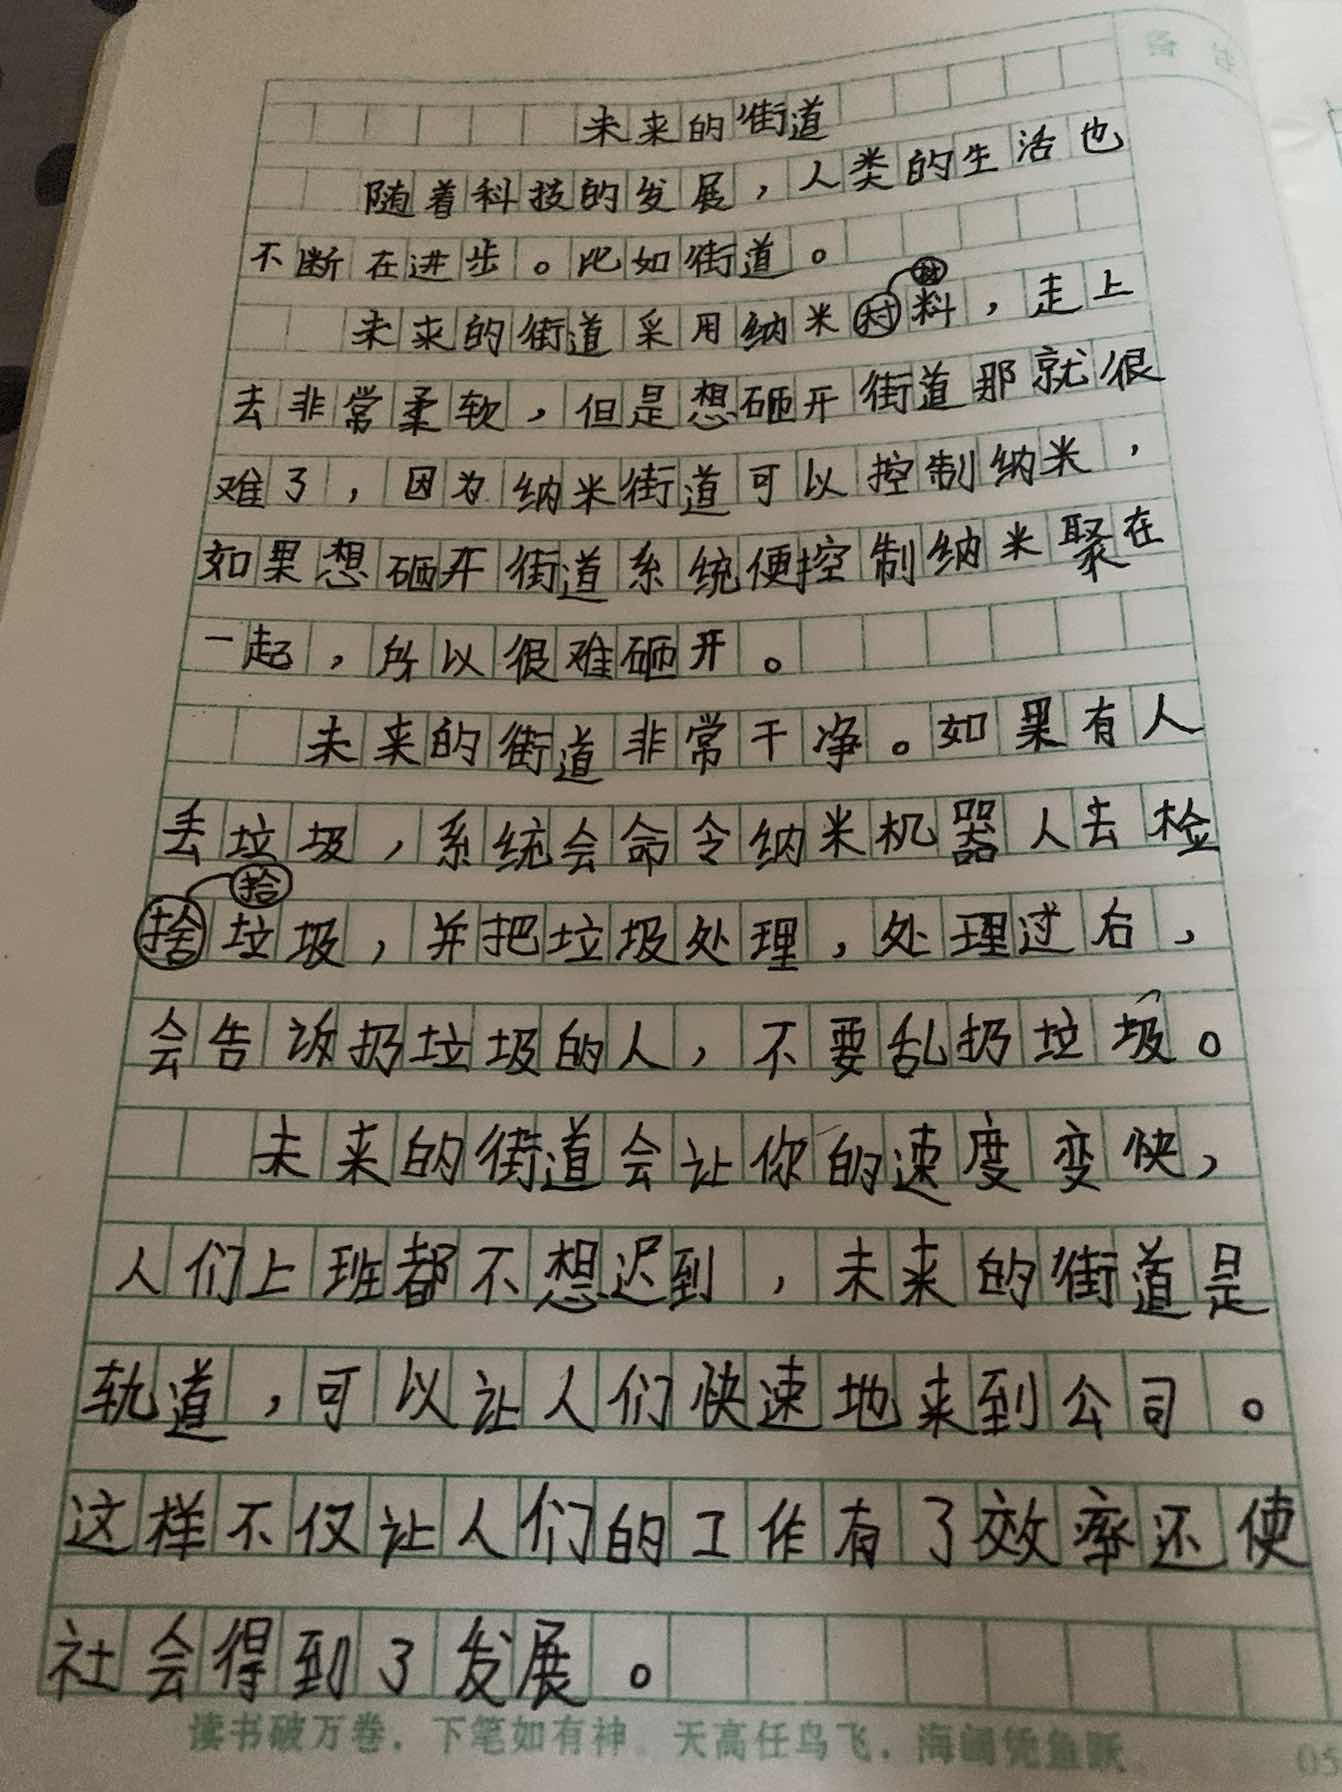 未来的街道
随着科技的发展，人类的生活也
不断在进步。比如街道。
材
未来的街道采用纳米村料，走上
去非常柔软，但是想砸开街道那就很
难了，因为纳米街道可以控制纳米，
如果想砸开街道系统便控制纳米聚在
一起，所以很难砸开。
未来的街道非常干净。如果有人
丢垃圾，系统会命令纳米机器人去检
拾
捨垃圾，并把垃圾处理，处理过右，
会告诉扔垃圾的人，不要乱扔垃圾。
未来的街道会让你的速度变快，
人们上班都不想迟到，未来的街道是
轨道，可以让人们快速地来到公司。
这样不仅让人们的工作有了效率还使
社会得到了发展。
读书破万卷，下笔如有神 天高任鸟飞，海阔凭鱼跃
05